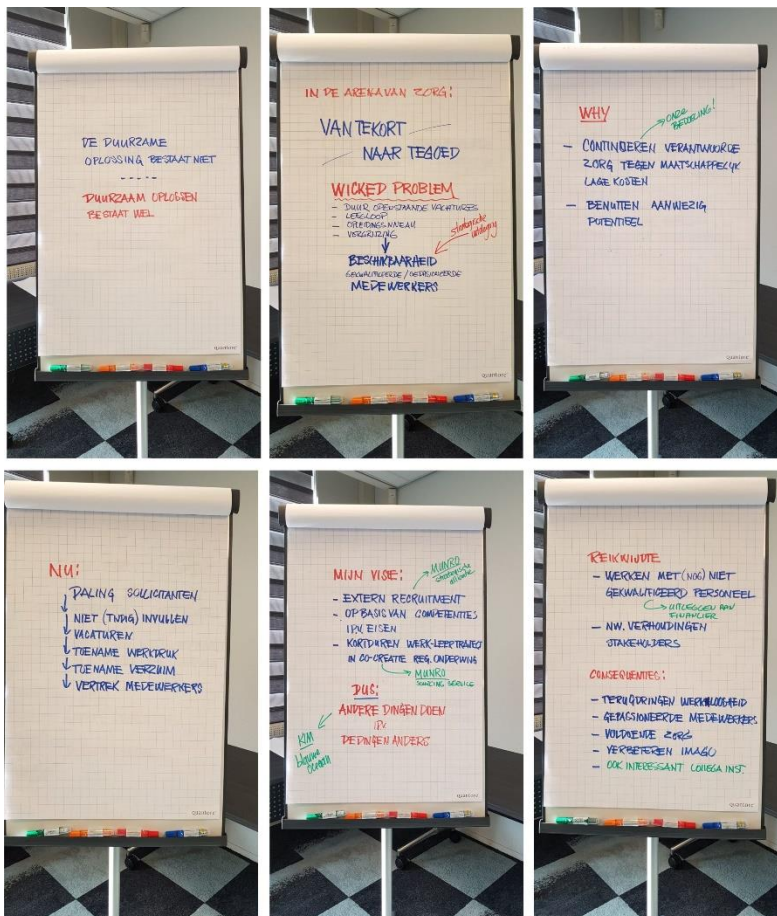 DE DUURZAME
OPLOSSING BESTAAT NIET
DUURZAAM OPLOSSEN
BESTAAT WEL
IN DE ARENA VAN ZORG:
VAN TEKORT
NAAR TEGOED
WICKED PROBLEM
- DUUR OPENSTAANDE VACATURES
- LEEGLOOP
- OPLEIDINGSNIVEAU
- VERGRIJZING
strategische
uitdaging
BESCHIKBAARHEID
GEKWALIFICEERDE / GEPASSIONEERDE
MEDEWERKERS
WHY
ONZE
BEDOELING!
- CONTINUEREN VERANTWOORDE
ZORG TEGEN MAATSCHAPPELIJK
LAGE KOSTEN
- BENUTTEN AANWEZIG
POTENTIEEL
NU:
DALING SOLLICITANTEN
NIET (TIJDIG) INVULLEN
VACATUREN
TOENAME WERKDRUK
TOENAME VERZUIM
VERTREK MEDEWERKERS
MIJN VISIE:
MUNRO
strategische
alliantie
- EXTERN RECRUITMENT
- OP BASIS VAN COMPETENTIES
I.P.V. EISEN
- KORTDUREN WERK-LEERTRAJECT
IN CO-CREATIE REG. ONDERWIJS
MUNRO
SOURCING SERVICE
DUS:
ANDERE DINGEN DOEN
I.P.V.
DE DINGEN ANDERS
KIM
blauwe
oceaan
REIKWIJDTE
- WERKEN MET (NOG) NIET
GEKWALIFICEERD PERSONEEL
UITLEGGEN AAN
FINANCIER
- NW. VERHOUDINGEN
STAKEHOLDERS
CONSEQUENTIES:
- TERUGDRINGEN WERKLOOSHEID
- GEPASSIONEERDE MEDEWERKERS
- VOLDOENDE ZORG
- VERBETEREN IMAGO
- OOK INTERESSANT COLLEGA INST.